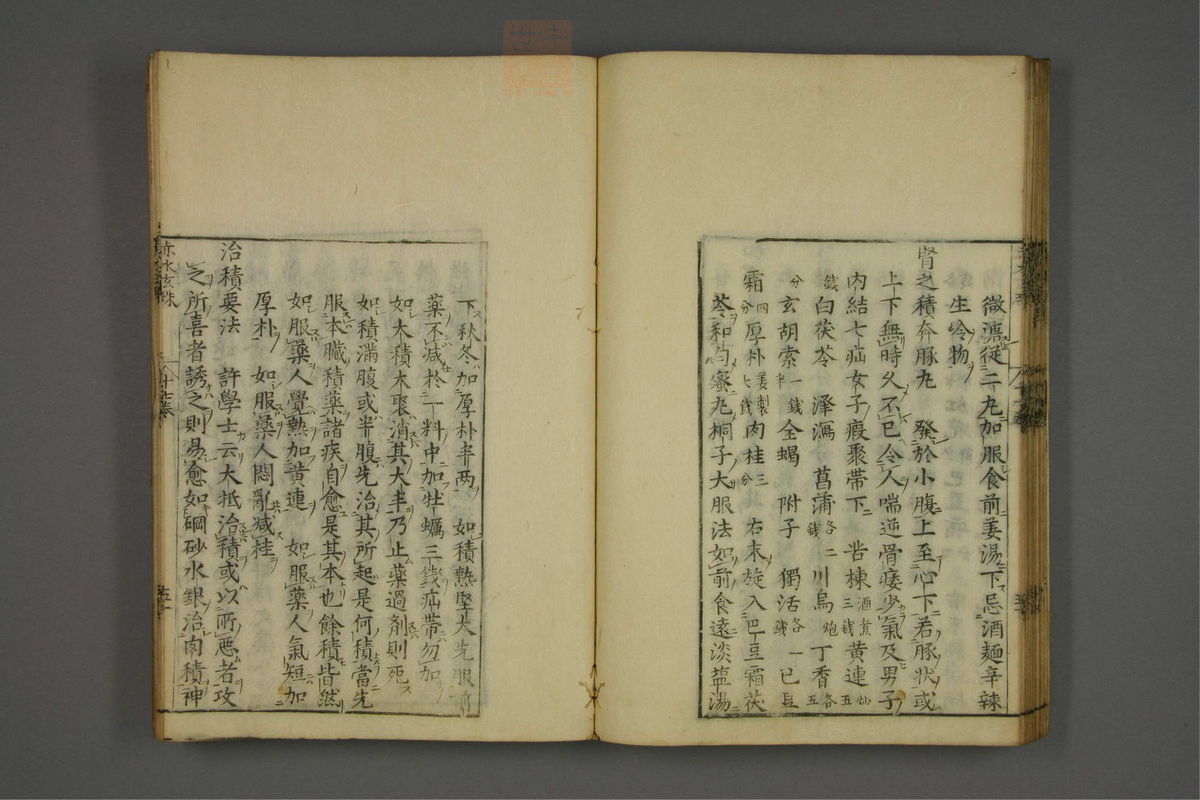 微溏從二丸加服食前姜湯下忌酒麺辛辣
生冷物
腎之積奔豚丸　發於小腹上至心下若豚狀或
上下無時久不已令人喘逆骨痿少氣及男子
内結七疝女子瘕聚帶下　苦楝酒煮三錢黄連炒五
錢白茯苓　澤瀉　菖蒲各二錢川烏炮丁香各五
分玄胡索一錢半全蝎　附子　獨活各一錢巴豆
霜四分厚朴姜製七錢肉桂三分右末旋入巴豆霜茯
苓和勻蜜丸桐子大服法如前食遠淡塩湯
下秋冬加厚朴半两　如積熱堅大先服前
藥不減於一料中加牡蠣三錢疝帶勿加
如大積大聚消其大半乃止藥過劑則死
如積滿腹或半腹先治其所起是何積當先
服本臓積藥諸疾自愈是其本也餘積皆然
如服藥人覺熱加黄連　如服藥人氣短加
厚朴　如服藥人悶亂減桂
治積要法　許學士云大抵治積或以所惡者攻
之所喜者誘之則易愈如硇砂水銀治肉積神
赤水玄珠
十九卷
五一